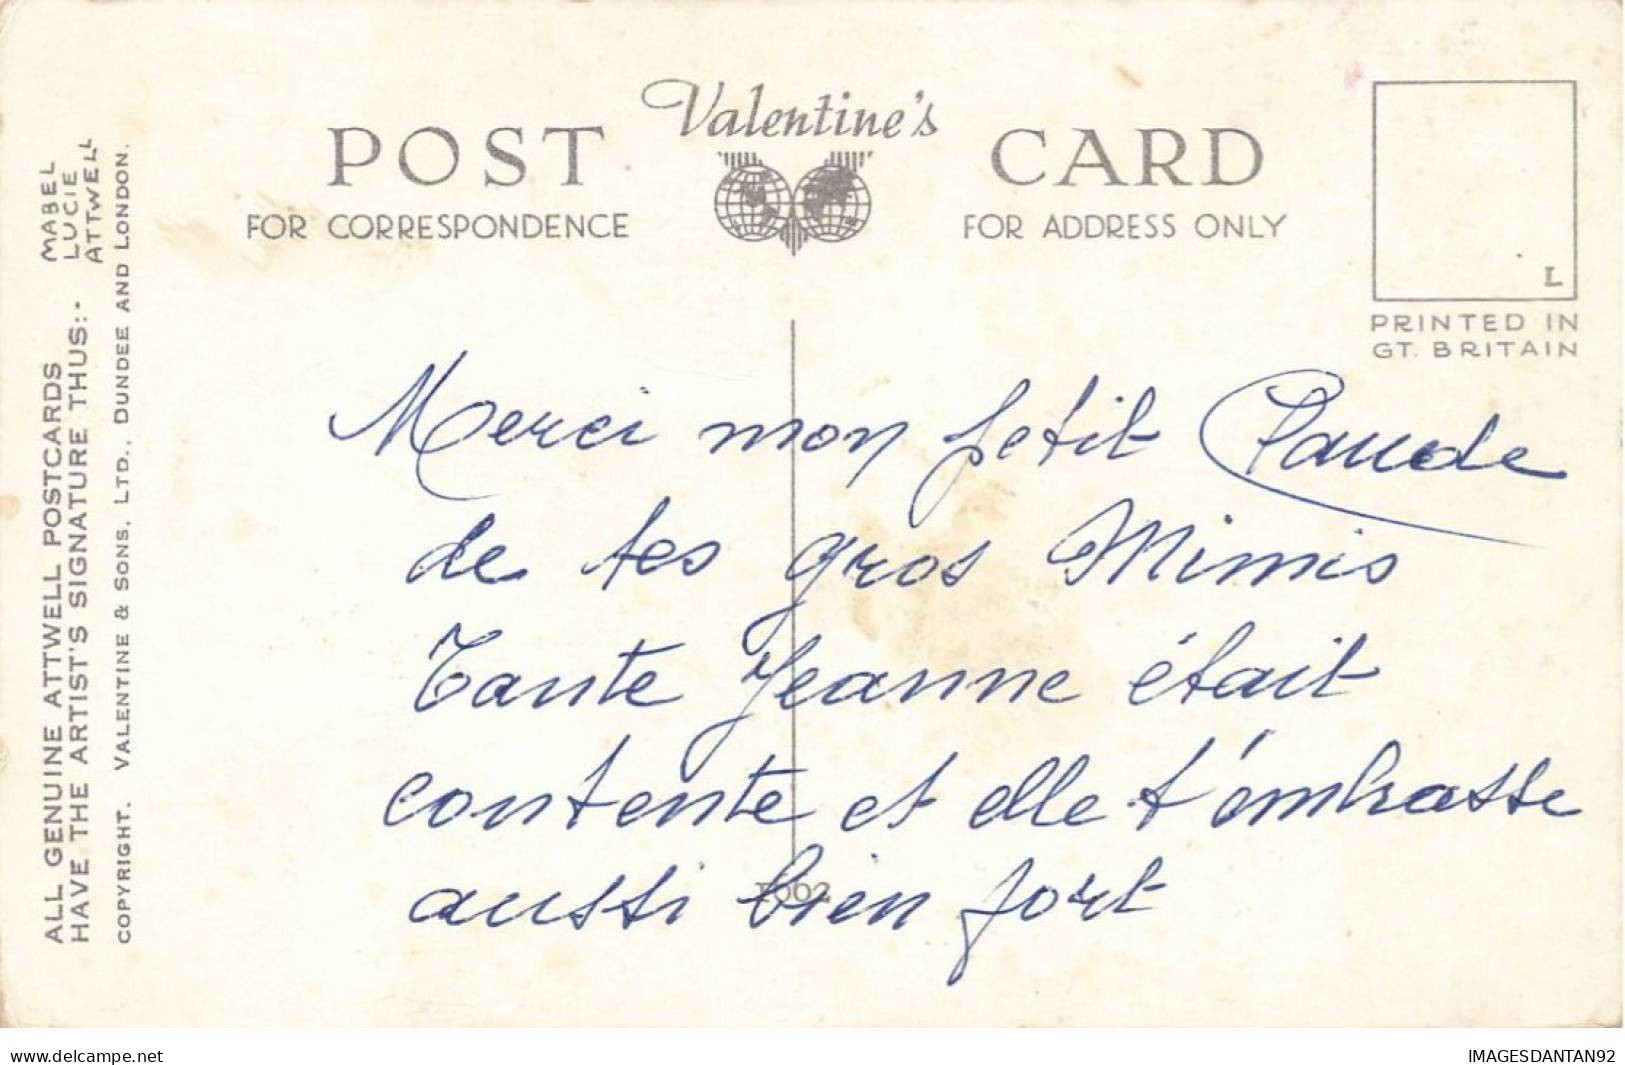 Valentine's
POST CARD
FOR CORRESPONDENCE
FOR ADDRESS ONLY
L
PRINTED IN
GT. BRITAIN
MABEL
LUCIE
ATTWELL
ALL GENUINE ATTWELL POSTCARDS
HAVE THE ARTIST'S SIGNATURE THUS:-
COPYRIGHT. VALENTINE & SONS, LTD., DUNDEE AND LONDON.
Merci mon petit
de tes gros Mimis
Tante Jeanne était
contente et elle t'embrasse
aussi bien fort
delcampe.net
IMAGESDANTAN92